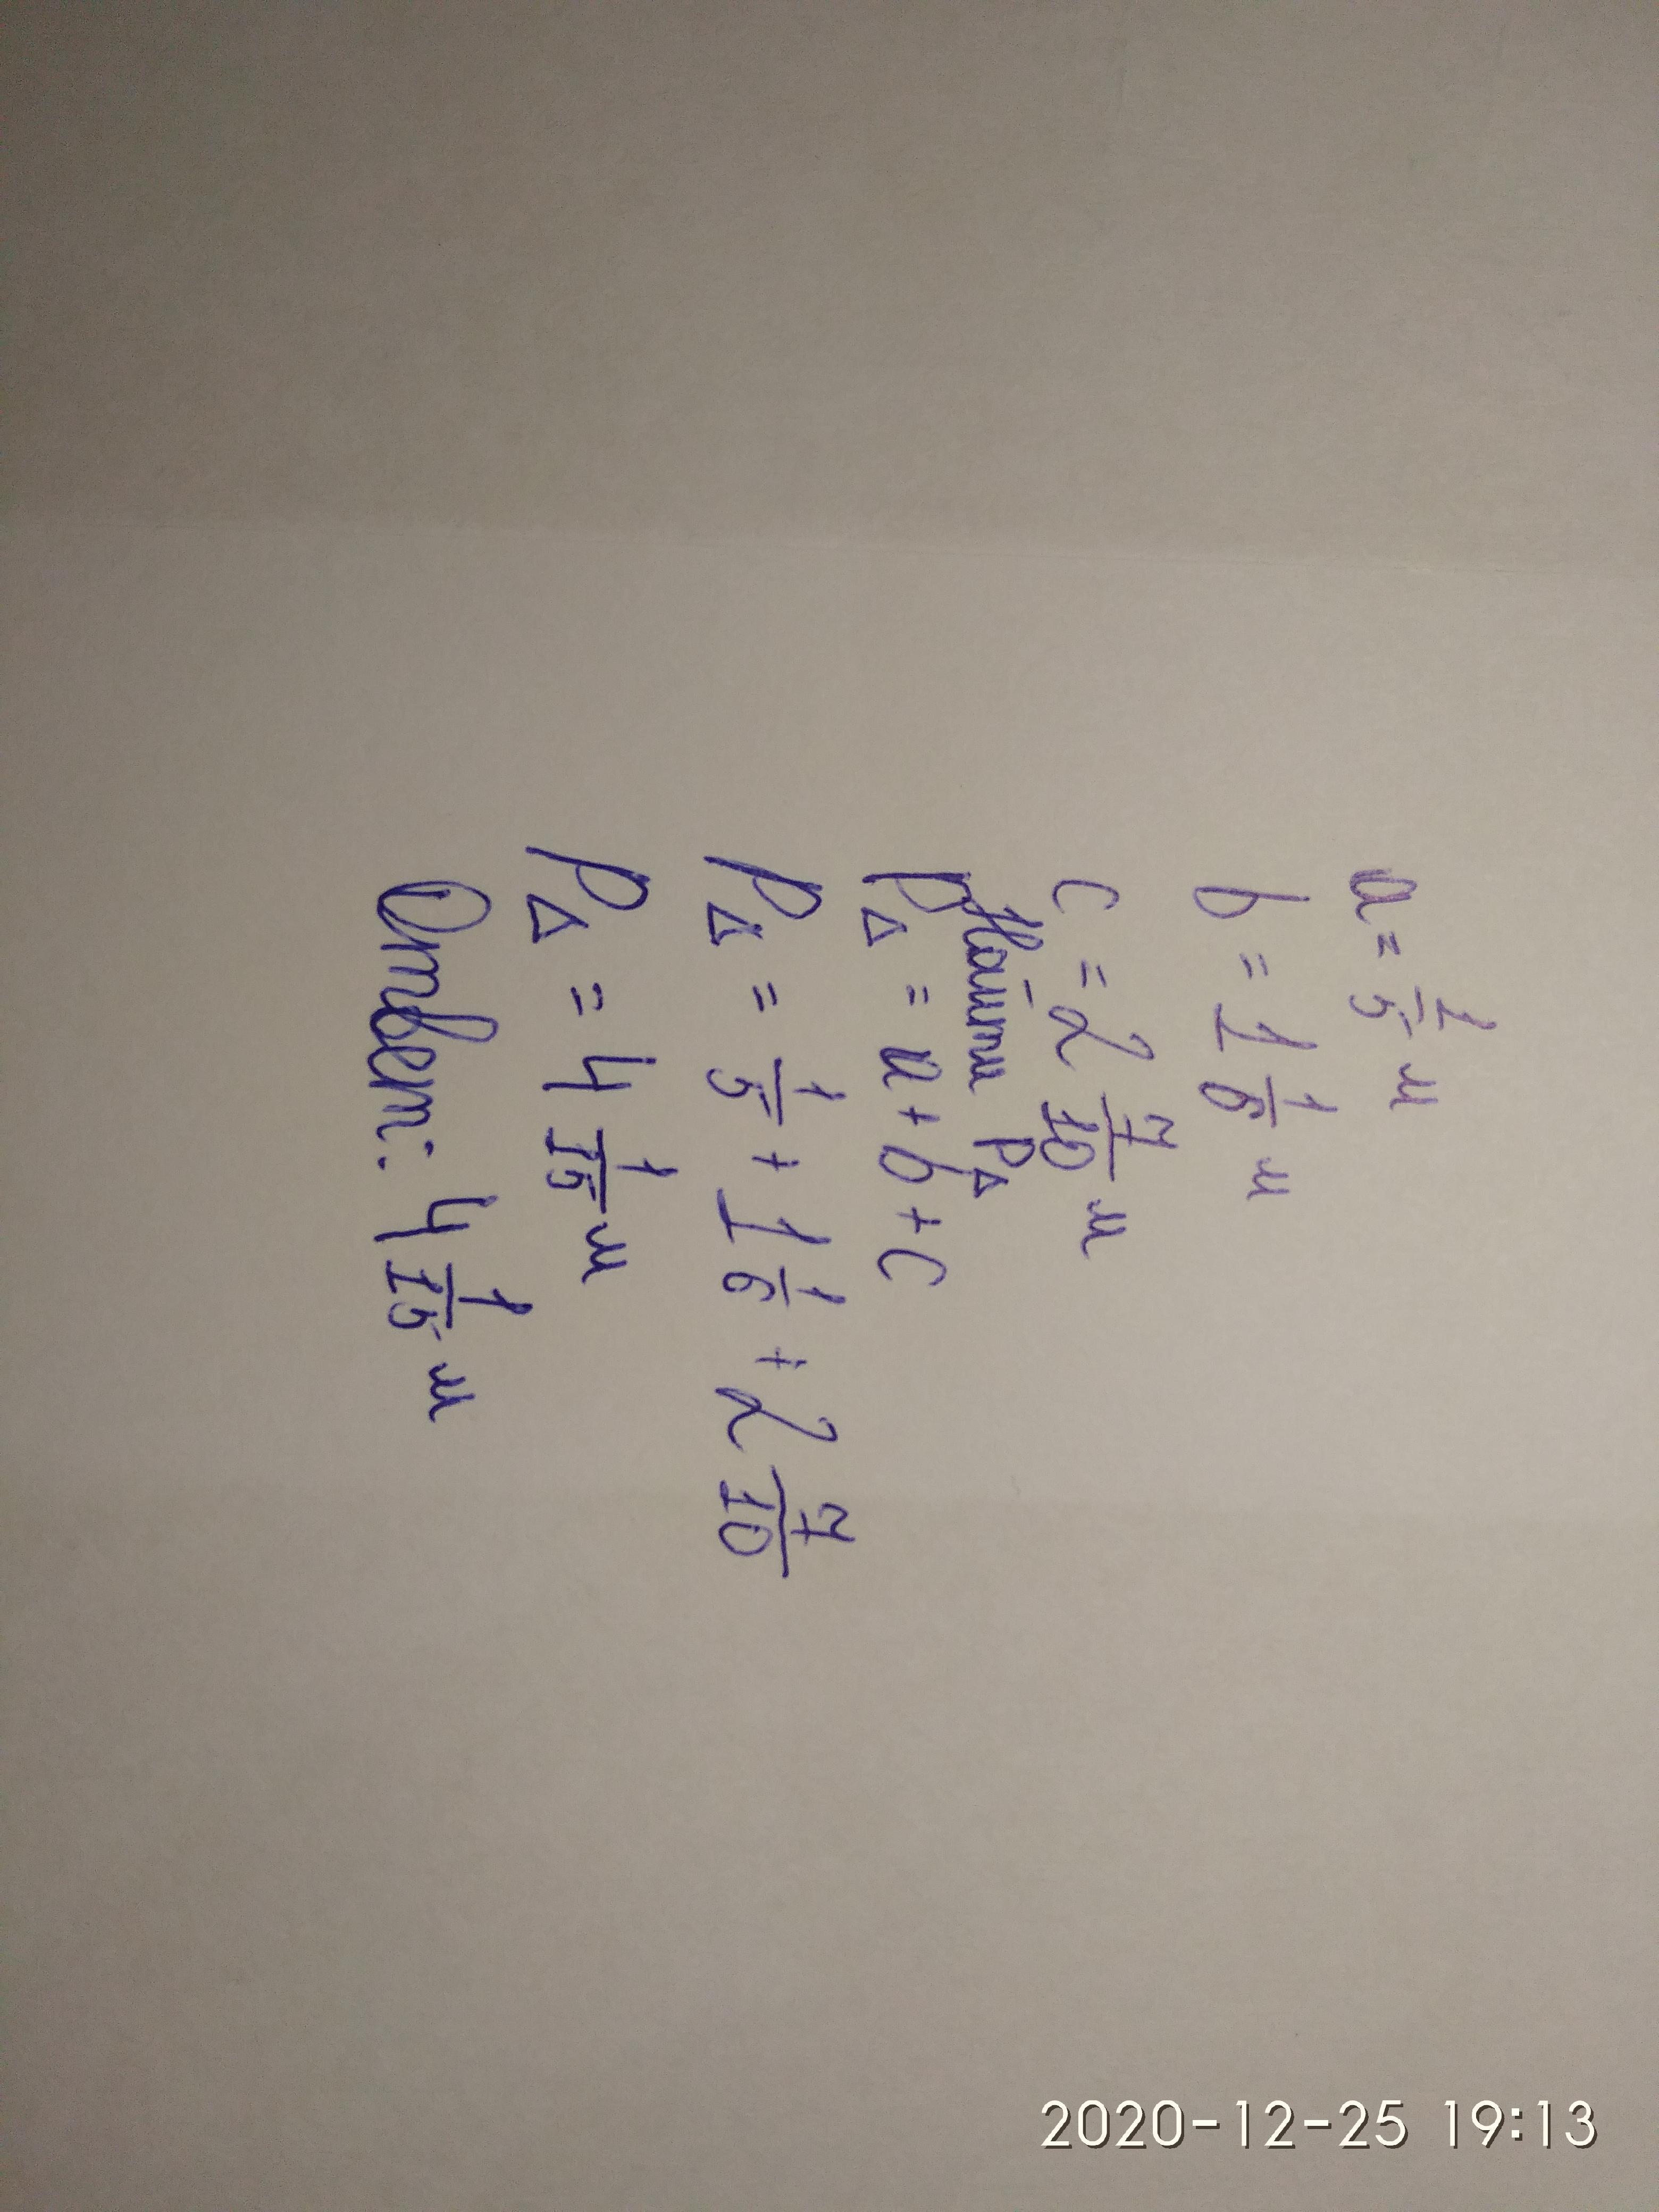 a = 1/5 м
b = 1 1/6 м
c = 2 7/10 м
Найти P△
P△ = a + b + c
P△ = 1/5 + 1 1/6 + 2 7/10
P△ = 4 1/15 м
Ответ: 4 1/15 м
2020-12-25 19:13